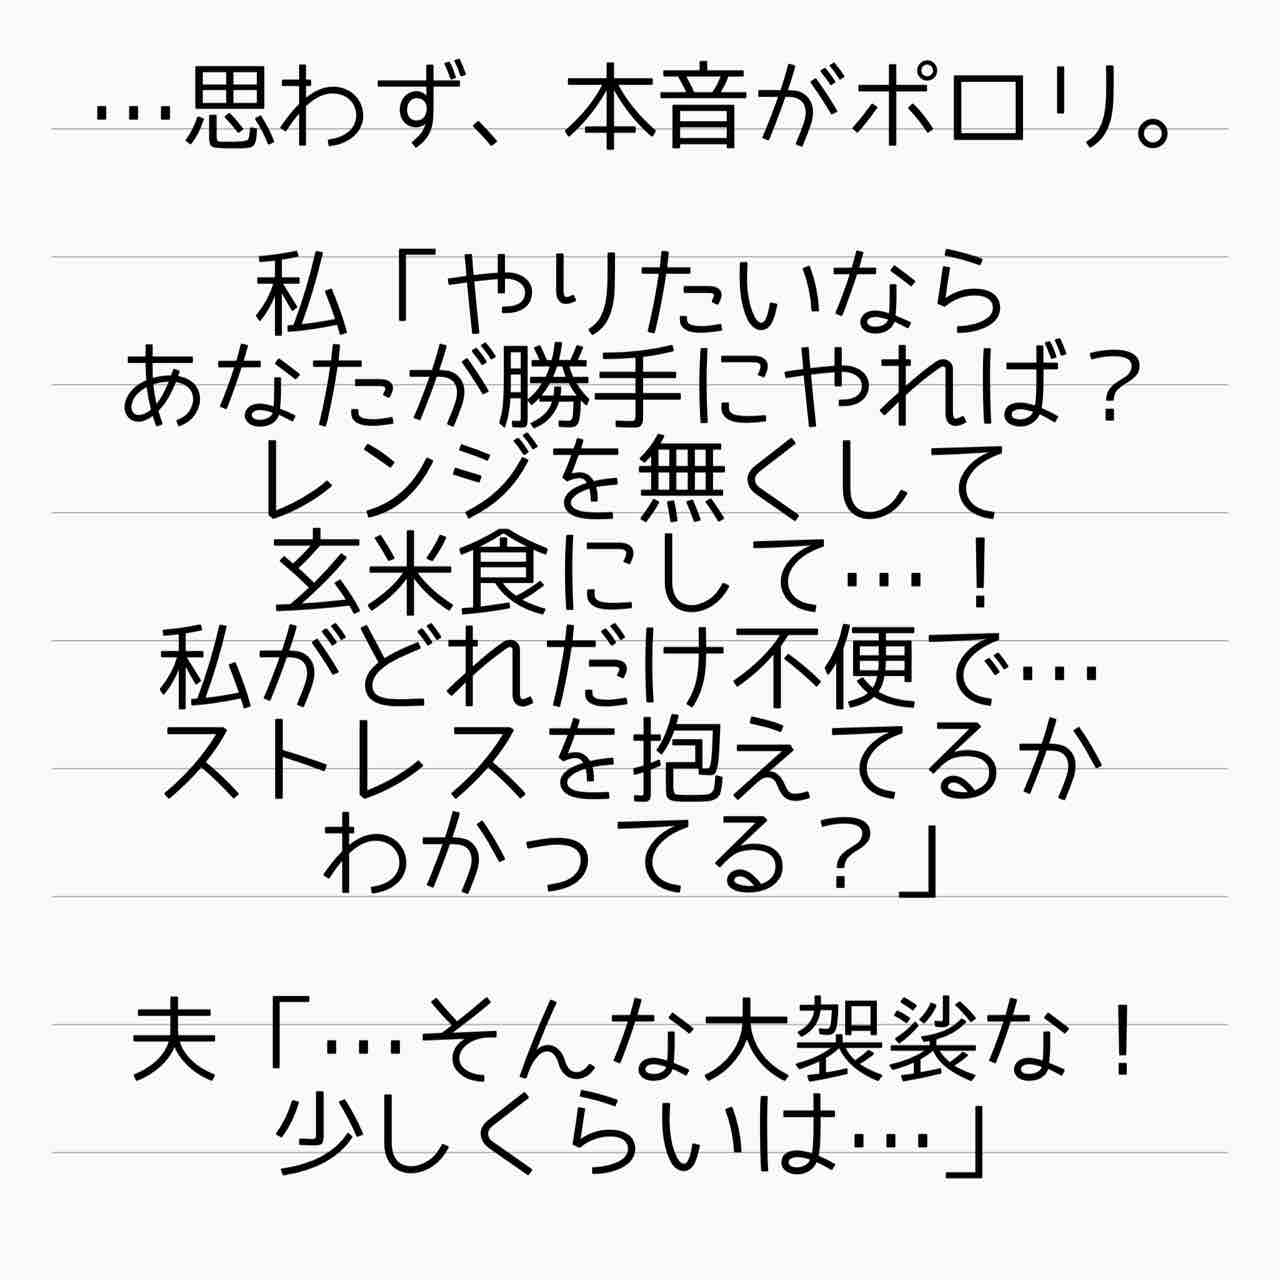 …思わず、本音がポロリ。
私「やりたいなら
あなたが勝手にやれば？
レンジを無くして
玄米食にして…！
私がどれだけ不便で…
ストレスを抱えてるか
わかってる？」
夫「…そんな大袈裟な！
少しくらいは…」